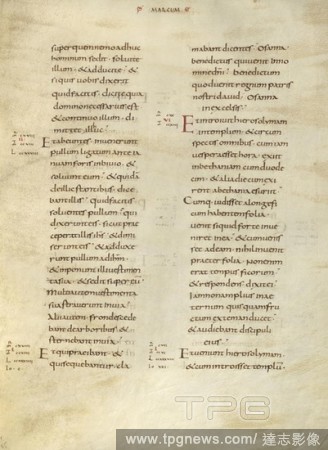 MARCUM
super quem nemo adhuc
hominum sedit soluite
illum & adducite & 
si quis uobis dixerit
quid facitis dicite quia
domino necessarius est
& continuo illum di
mittet illuc
Et abeuntes inuenerunt
pullum ligatum ante ia
nuam foris in biuio &
soluunt eum & quidā
de illic stantibus dice
bant illis quid facitis
soluentes pullum qui
dixerunt eis sicut prae
ceperat illis ihs & dimi
serunt eis & adduxe
runt pullum ad ihm
& imponunt illi uestimen
ta sua & sedit super eū
Multi autem uestimenta
sua strauerunt in uia
Alii autem frondes cede
bant de arboribus &
sternebant in uia
Et qui praeibant &
qui sequebantur cla
mabant dicentes Osanna
benedictus qui uenit in no
mine dni Benedictum
quod uenit regnum patris
nostri dauid Osanna
in excelsis
Et introiuit hierosolymam
in templum & circum
spectis omnibus cum iam
uespera esset hora exiit
in bethaniam cum duode
cim & alia die cum exi
rent a bethania esuriit
Cumq. uidisset a longe fi
cum habentem folia
uenit si quid forte inue
niret in ea & cum uenis
set ad eam nihil inuenit
praeter folia Non enim
erat tempus ficorum
& respondens dixit ei
Iam non amplius in ae
ternum quisquam fruc
tum ex te manducet
& audiebant discipuli
eius
Et ueniunt hierosolymam
& cum introisset templū
TPG
www.tpgnews.com / 達志影像